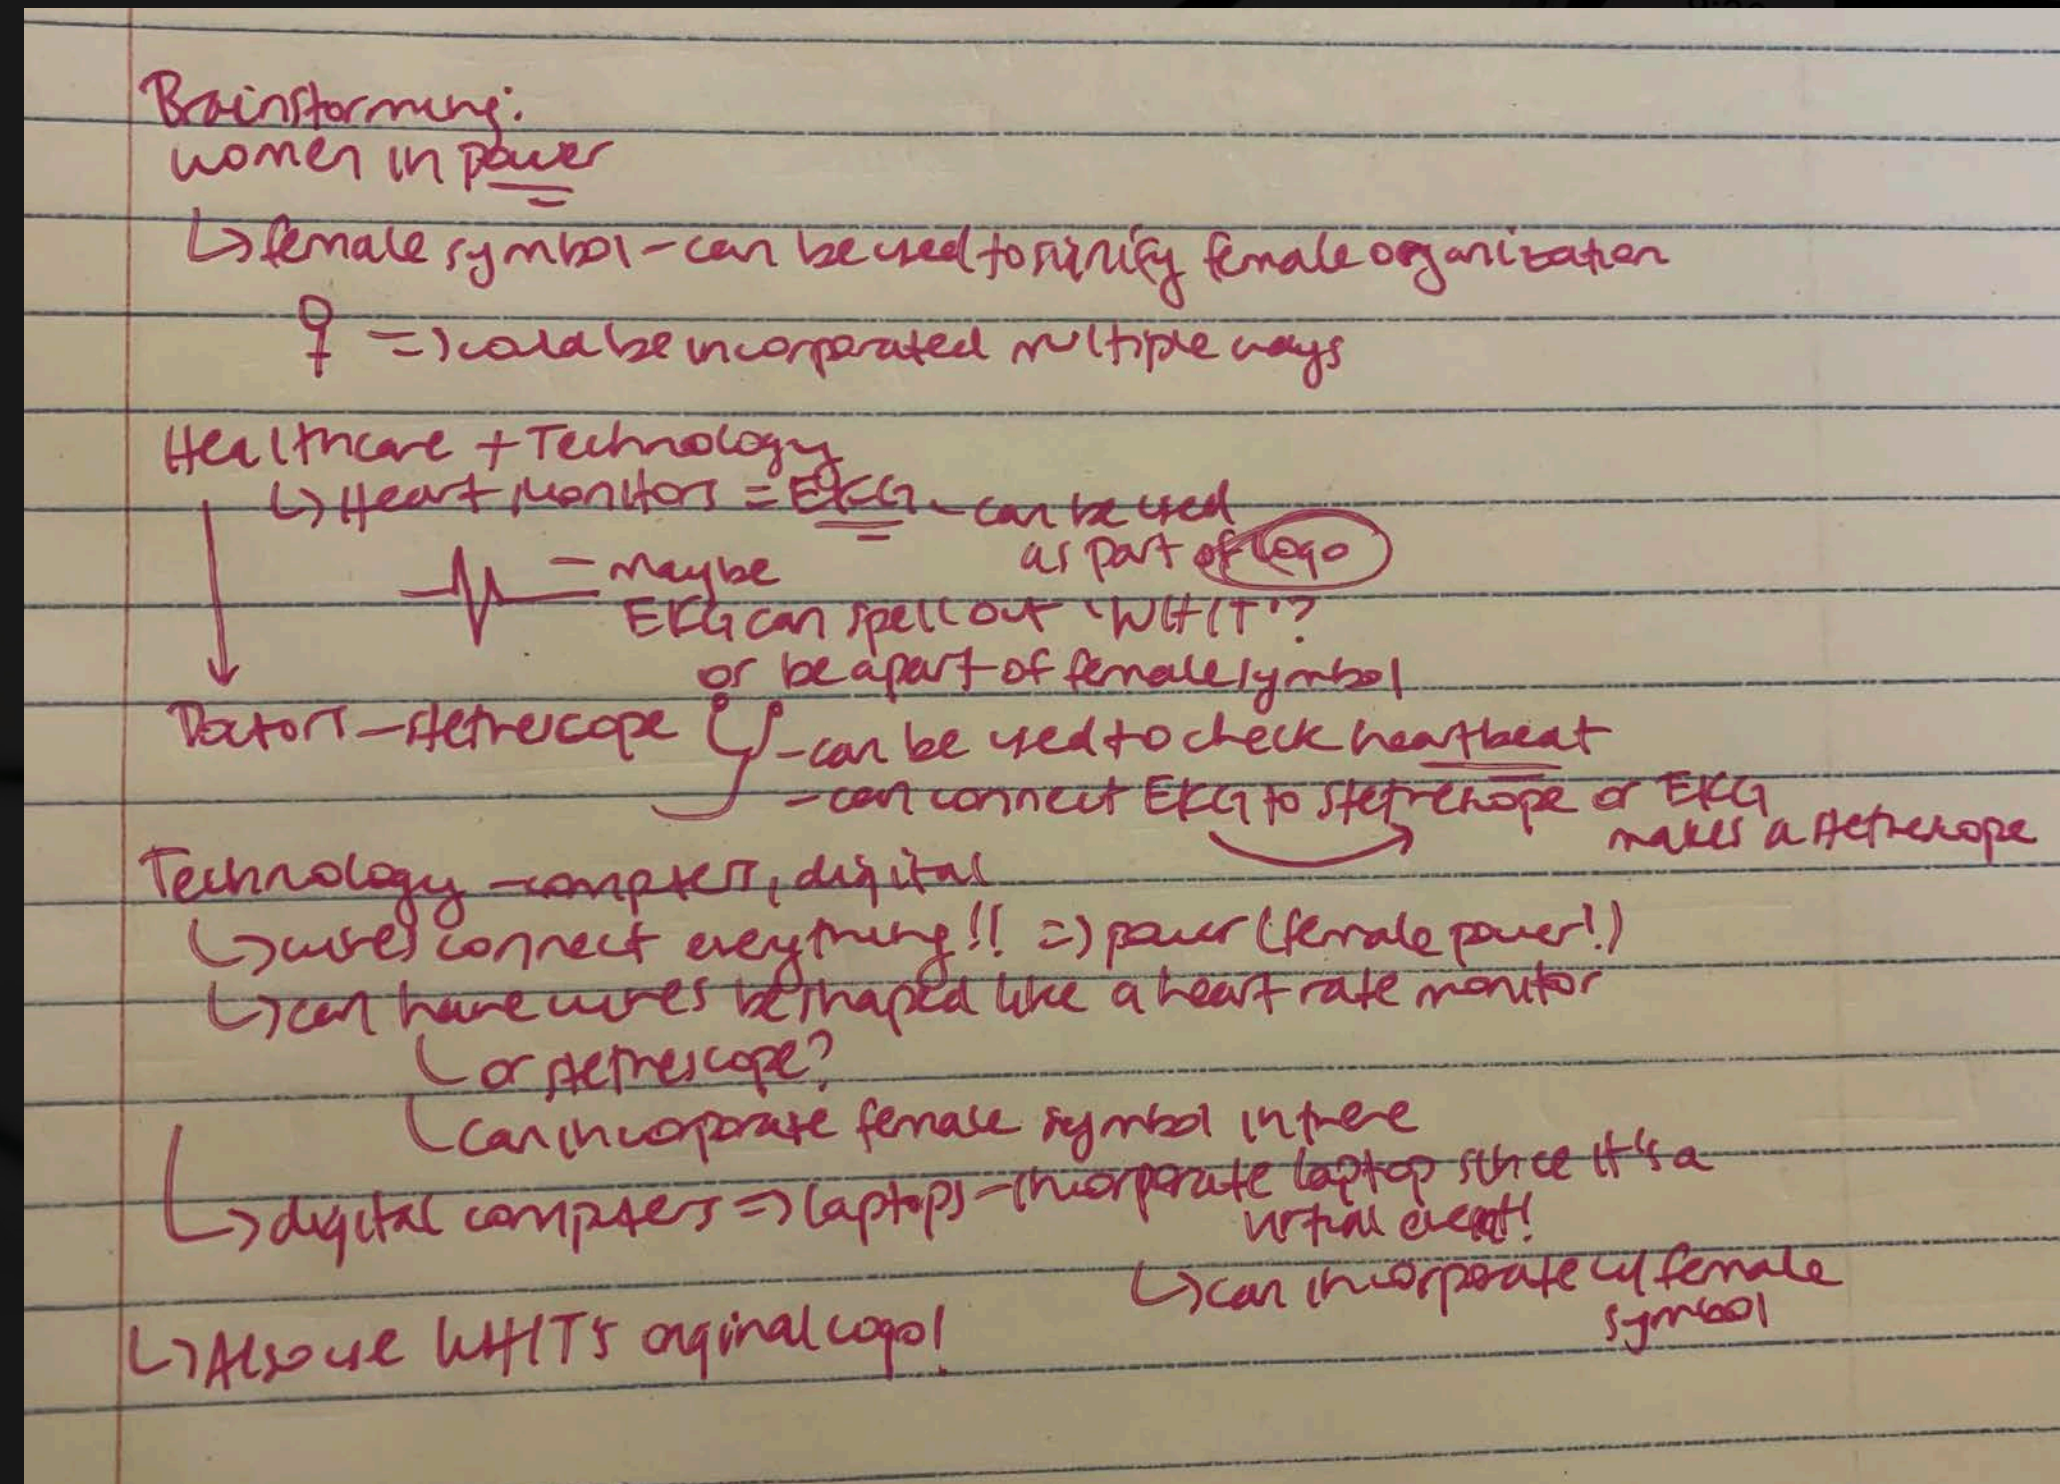 Brainstorming:
women in power
↳ female symbol - can be used to signify female organization
♀ => could be incorporated multiple ways
Healthcare + Technology
↳ Heart Monitors = EKG - can be used
as part of logo
- Maybe
EKG can spell out 'WHIT'?
or be a part of female symbol
Doctors - stethescope
- can be used to check heartbeat
- can connect EKG to stethescope or EKG
makes a stethescope
Technology - computers, digital
↳ wires connect everything!! => power (female power!)
↳ can have wires be shaped like a heart rate monitor
or stethescope?
can incorporate female symbol in there
↳ digital computers => laptops - incorporate laptop since it's a
virtual event!
↳ can incorporate w/ female
symbol
↳ Also use WHIT's orginal logo!